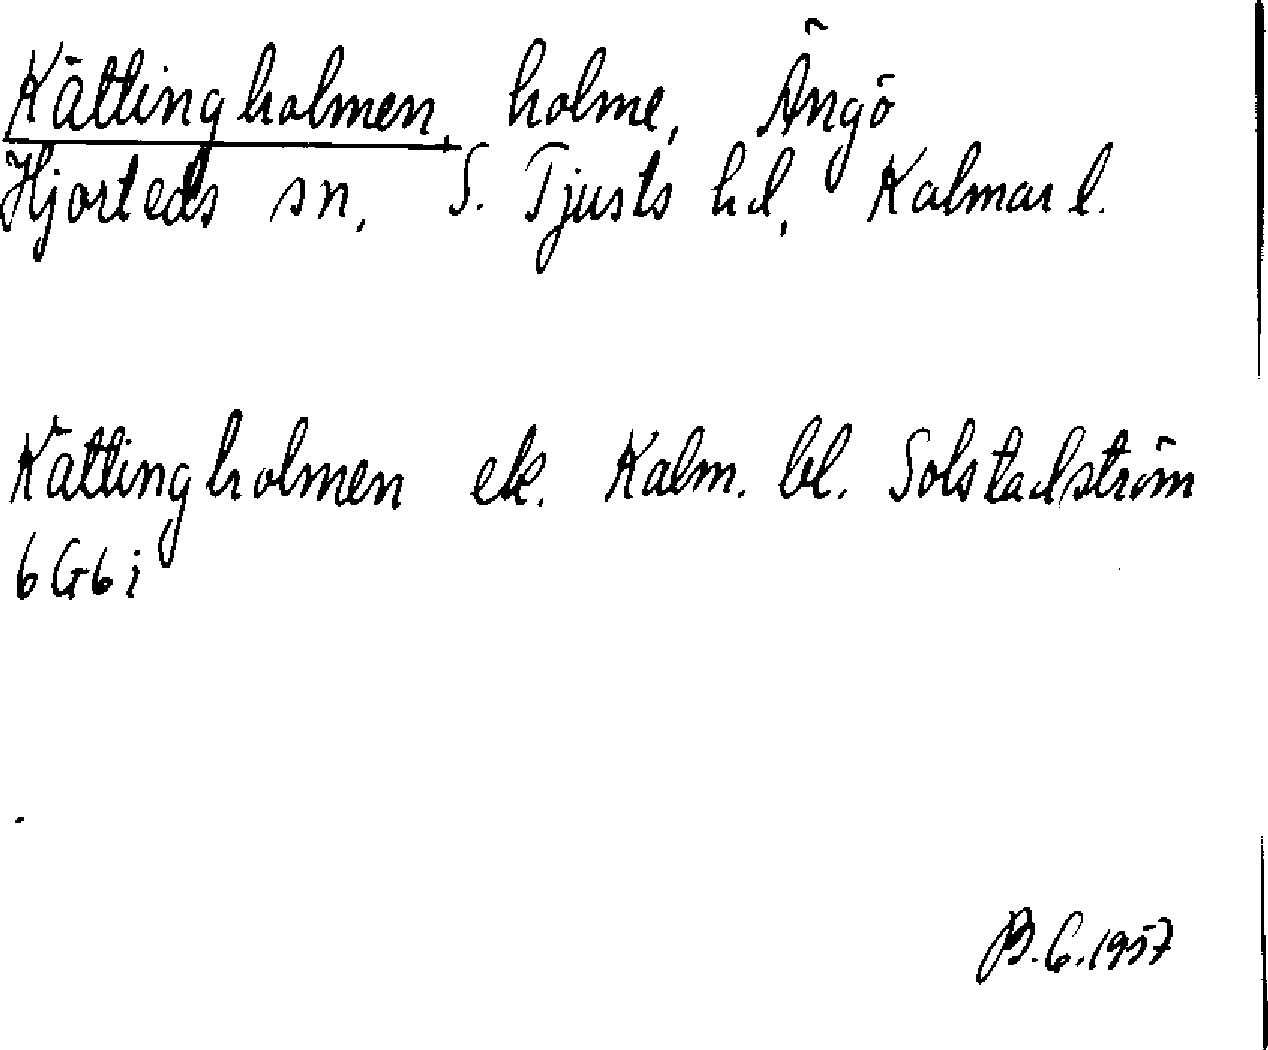 Kättingholmen, holme, Ängö
Hjorteds sn, S. Tjusts hd, Kalmar l.
Kättingholmen ek. Kalm. bl. Solstadström
6G6i
B.G.1957